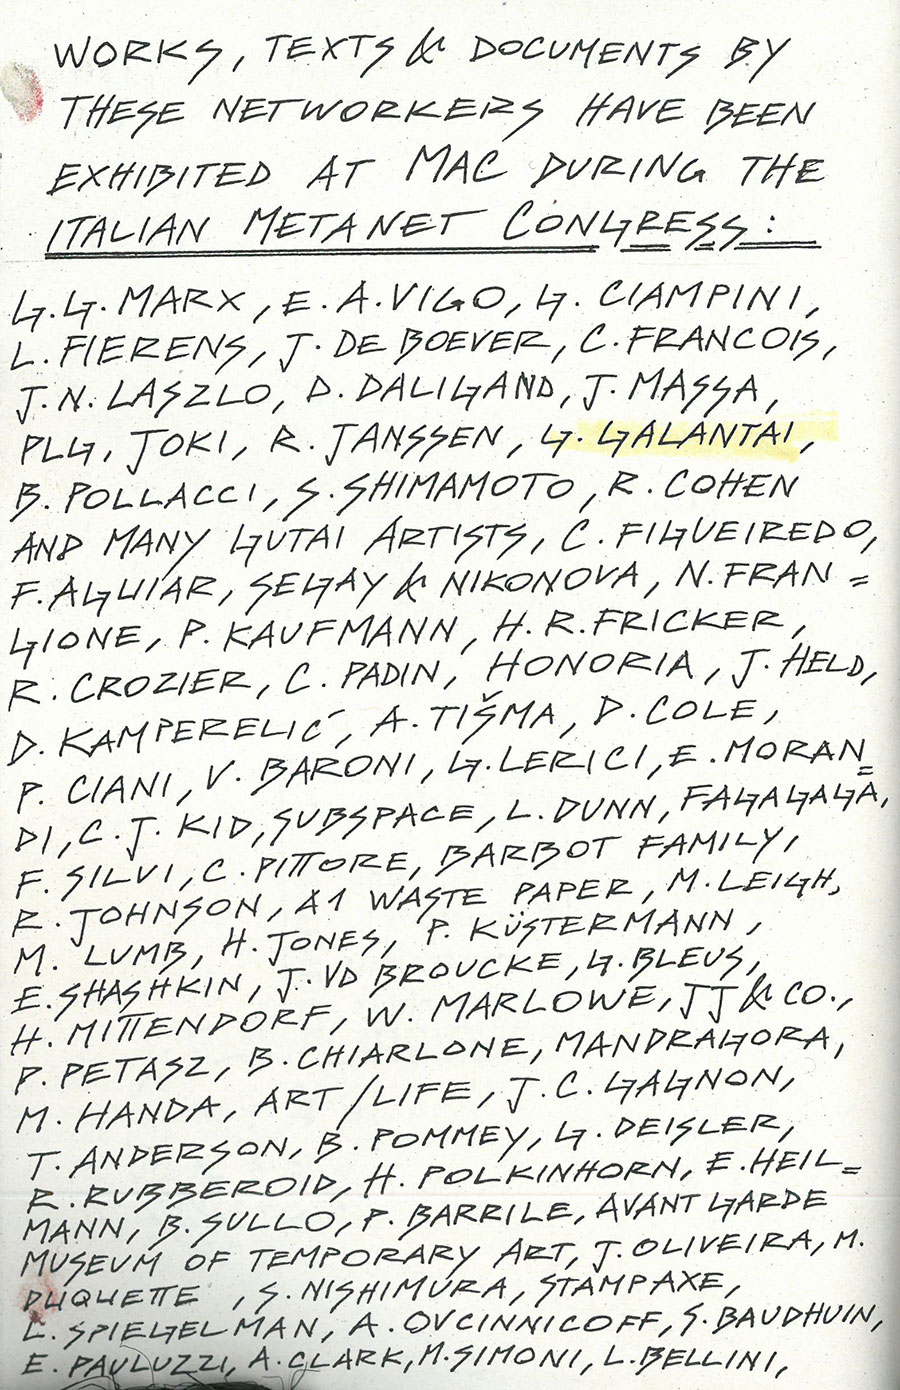 WORKS, TEXTS & DOCUMENTS BY
THESE NETWORKERS HAVE BEEN
EXHIBITED AT MAC DURING THE
ITALIAN METANET CONGRESS:
G.G. MARX, E. A. VIGO, G. CIAMPINI,
L. FIERENS, J. DE BOEVER, C. FRANCOIS,
J.N. LASZLO, D. DALIGAND, J. MASSA,
PLG, JOKI, R. JANSSEN, G. GALANTAI,
B. POLLACCI, S. SHIMAMOTO, R. COHEN
AND MANY GUTAI ARTISTS, C. FIGUEIREDO,
F. AGUIAR, SEGAY & NIKONOVA, N. FRAN=
GIONE, P. KAUFMANN, H.R. FRICKER,
R. CROZIER, C. PADIN, HONORIA, J. HELD,
D. KAMPERELIĆ, A. TIŠMA, D. COLE,
P. CIANI, V. BARONI, G. LERICI, E. MORAN=
DI, C. J. KID, SUBSPACE, L. DUNN, FAGAGAGA,
F. SILVI, C. PITTORE, BARBOT FAMILY,
R. JOHNSON, A1 WASTE PAPER, M. LEIGH,
M. LUMB, H. JONES, P. KÜSTERMANN,
E. SHASHKIN, J. VD BROUCKE, G. BLEUS,
H. MITTENDORF, W. MARLOWE, JJ & CO.,
P. PETASZ, B. CHIARLONE, MANDRAGORA,
M. HANDA, ART/LIFE, J. C. GAGNON,
T. ANDERSON, B. POMMEY, G. DEISLER,
R. RUBBEROID, H. POLKINHORN, E. HEIL=
MANN, B. SULLO, P. BARRILE, AVANT GARDE
MUSEUM OF TEMPORARY ART, J. OLIVEIRA, M.
DUQUETTE, S. NISHIMURA, STAMPAXE,
L. SPIEGELMAN, A. OVCINNICOFF, S. BAUDHUIN,
E. PAULUZZI, A. CLARK, M. SIMONI, L. BELLINI,